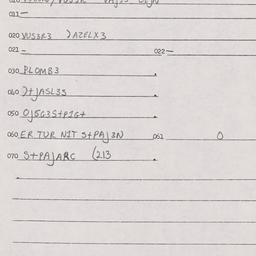 011-
020 VUS3R3 )AZELX3
021- 022-
030 PLOMB3
040 )+jASL3S
050 OjSG3S+PIG+
060 ER TUR NIT S+PAj3N 061 0
070 S+PAjARC (213